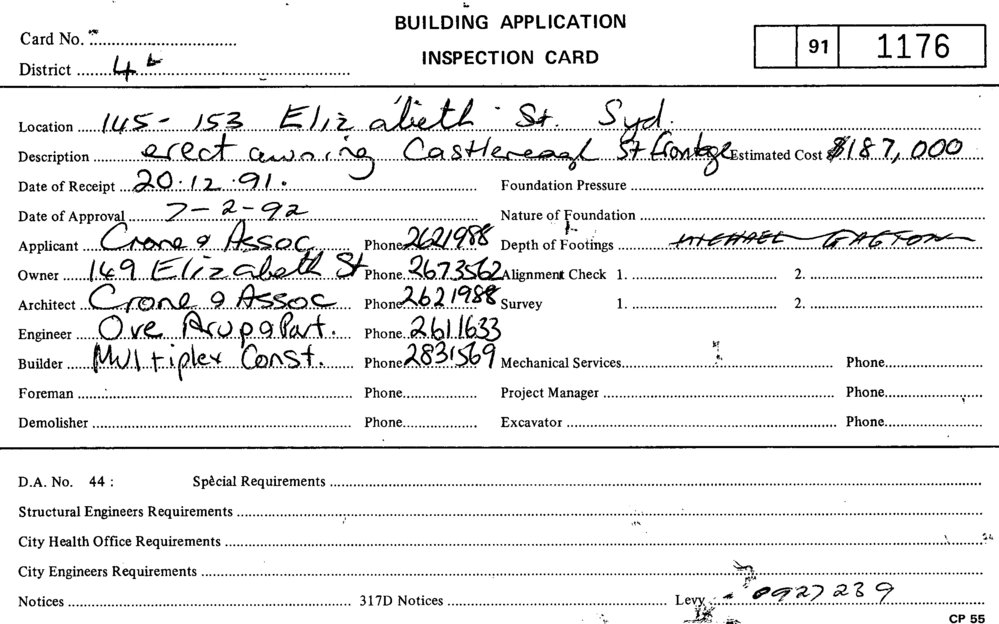 BUILDING APPLICATION
INSPECTION CARD
Card No.
District 4
91 1176
Location 145 - 153 Elizabeth St. Syd.
Description erect awning Castlereagh St frontage Estimated Cost $187,000
Date of Receipt 20.12.91. Foundation Pressure
Date of Approval 7-2-92 Nature of Foundation
Applicant Crone & Assoc Phone 2621988 Depth of Footings MICHAEL
Owner 149 Elizabeth St Phone 2673562 Alignment Check 1. 2.
Architect Crone & Assoc Phone 2621988 Survey 1. 2.
Engineer Ove Arup & Part. Phone 2611633
Builder Multiplex Const. Phone 2831569 Mechanical Services Phone
Foreman Phone Project Manager Phone
Demolisher Phone Excavator Phone
D.A. No. 44 : Special Requirements
Structural Engineers Requirements
City Health Office Requirements
City Engineers Requirements
Notices 317D Notices Levy 0927239
CP 55